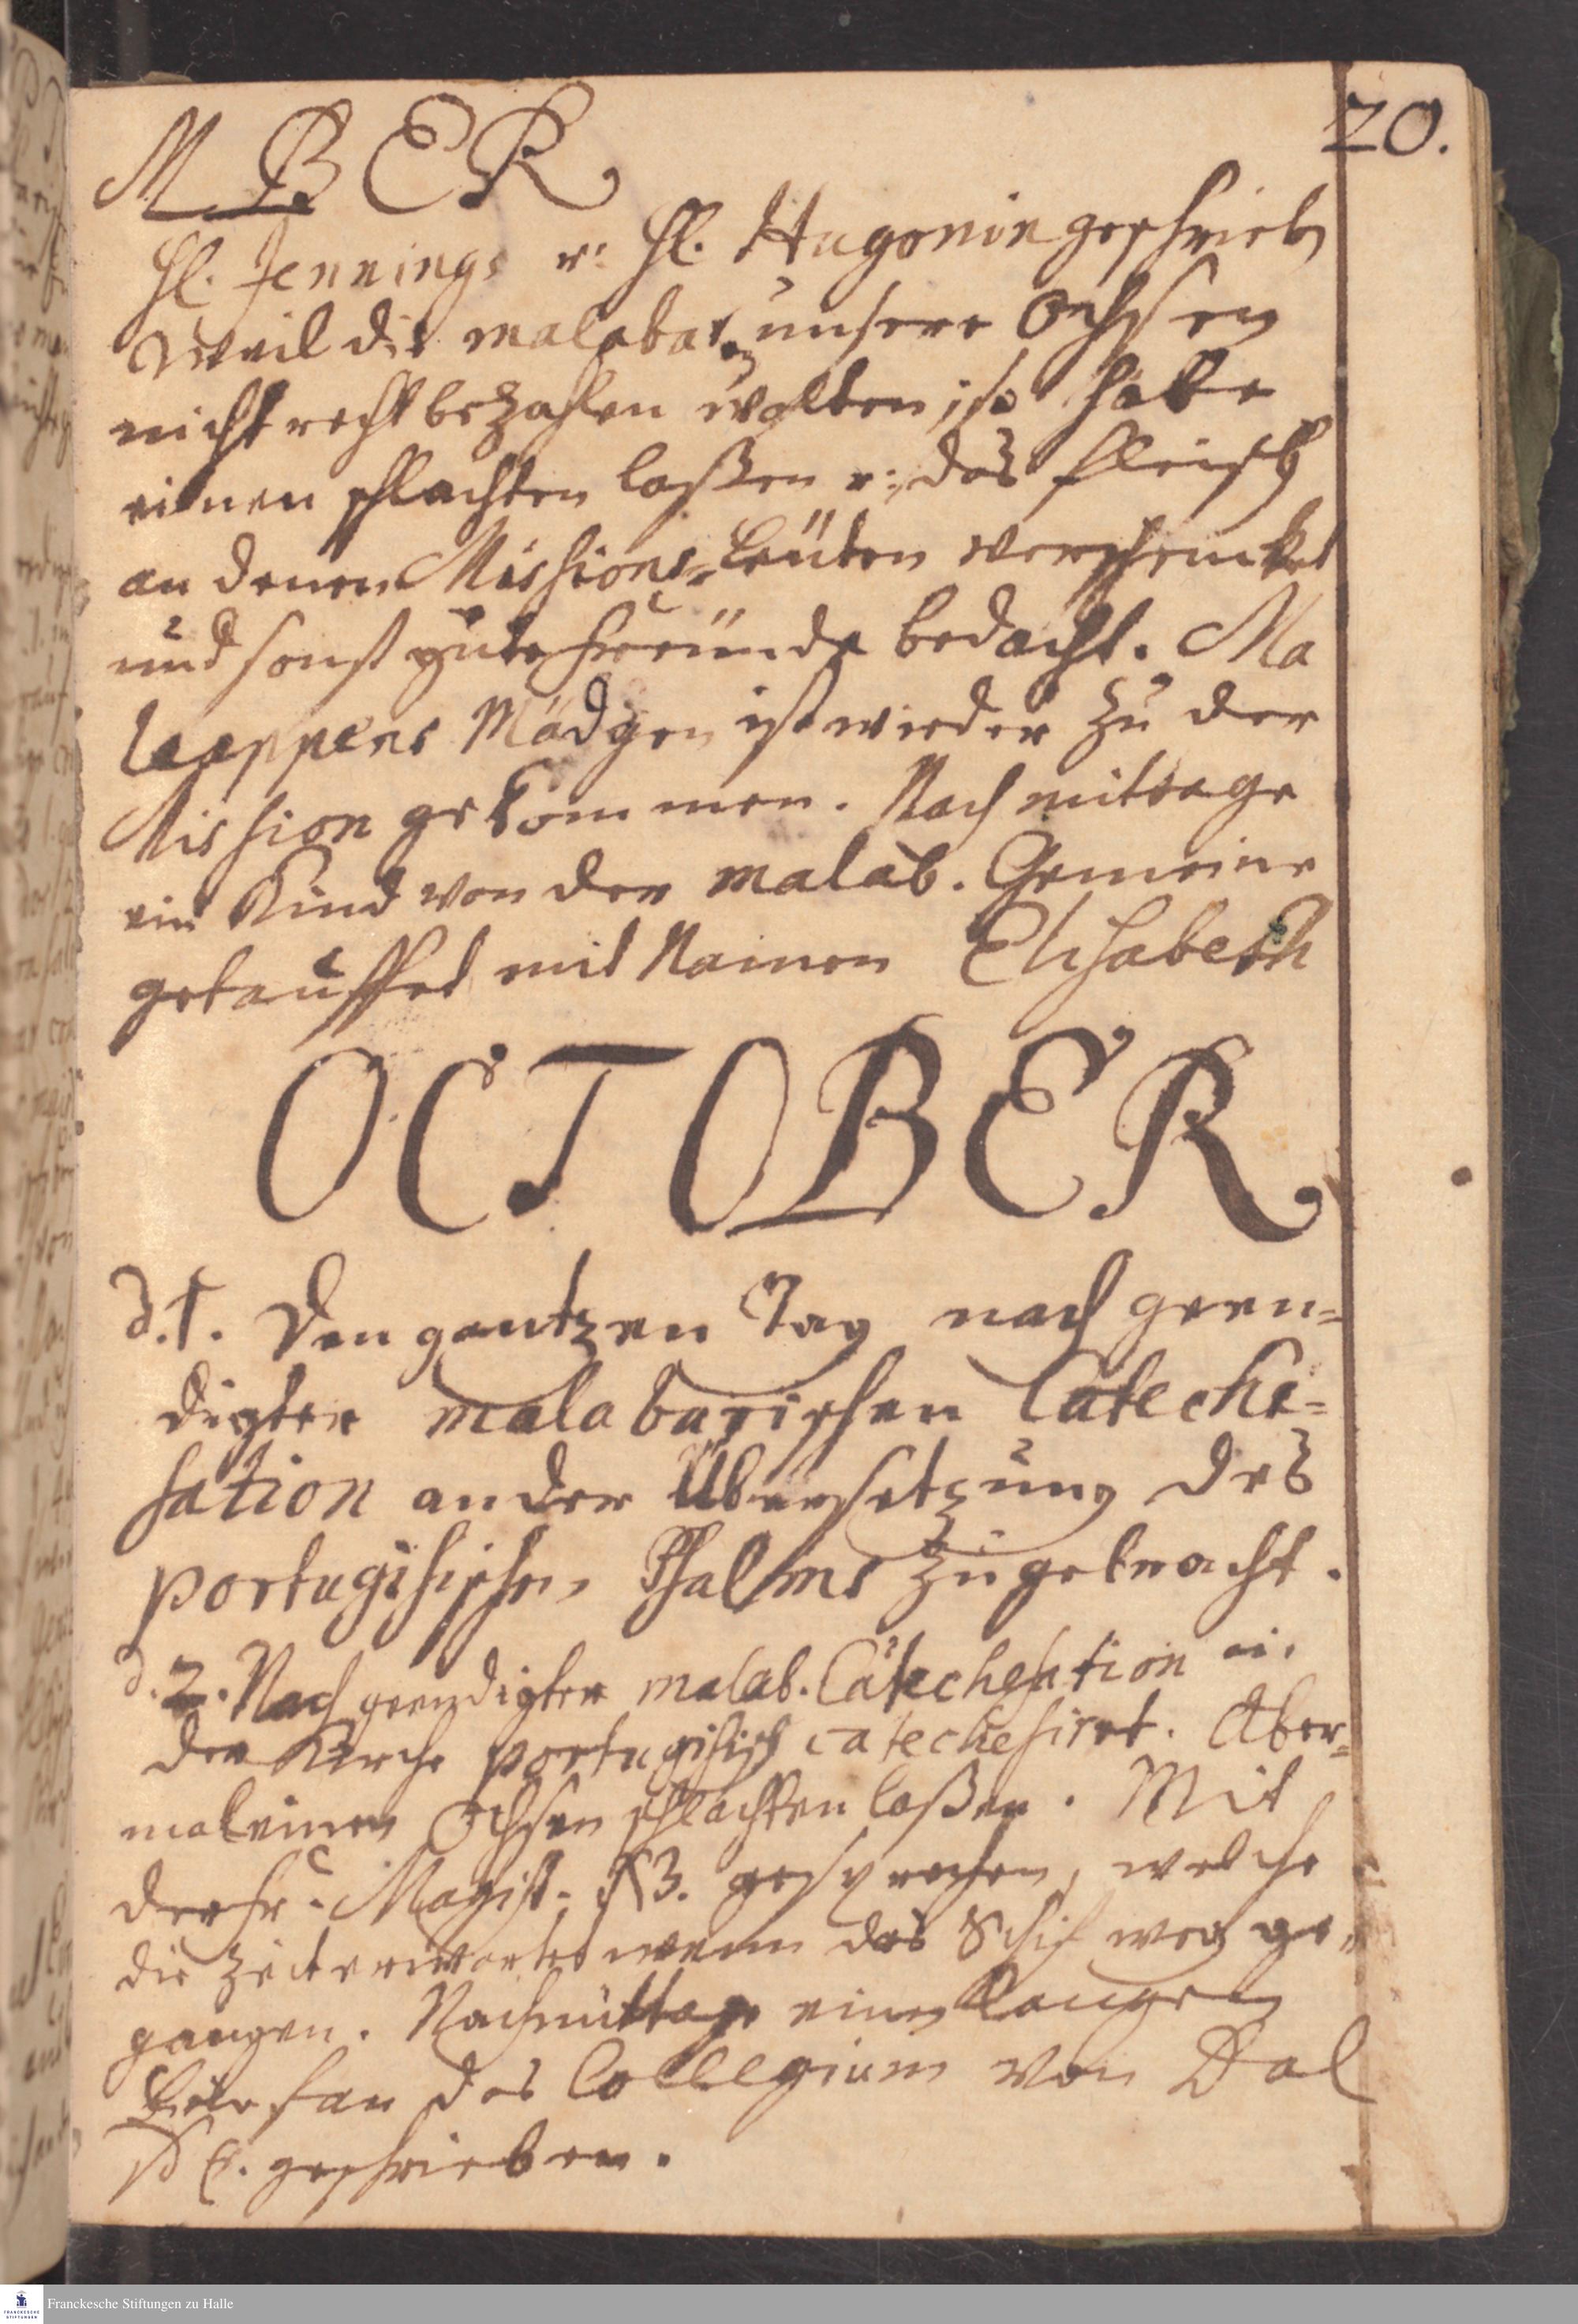 20.
M BER
H. Jennings u: H. Hugonin geschrieben
Weil die malabaren unsere Ochsen
nicht recht bezahlen wolten, so habe
einen schlachten laßen u: das Fleisch
an denen Missions-Leüten verschencket
und sonst gute Freünde bedacht. Ma
leappens Mädgen ist wieder zu der
Mission gekommen. Nachmittage
ein Kind von der malab. Gemeine
getauffet mit Namen Elisabeth
OCTOBER
d. 1. Den gantzen Tag nach geen=
digter malabarischen Cateche=
sation an der Übersetzung des
portugisischen Psalms zugebracht.
d. 2. Nach geendigter malab. Catechesation in
der Kirche portugisisch catechesiret. Aber=
mal einen Ochsen schlachten laßen. Mit
der Fr. Magist. gesprochen, welche
die Zeit erwartet wenn das Schif weg ge=
gangen. Nachmittage einen langen
Brief an das Collegium von Dal
geschrieben.
Franckesche Stiftungen zu Halle